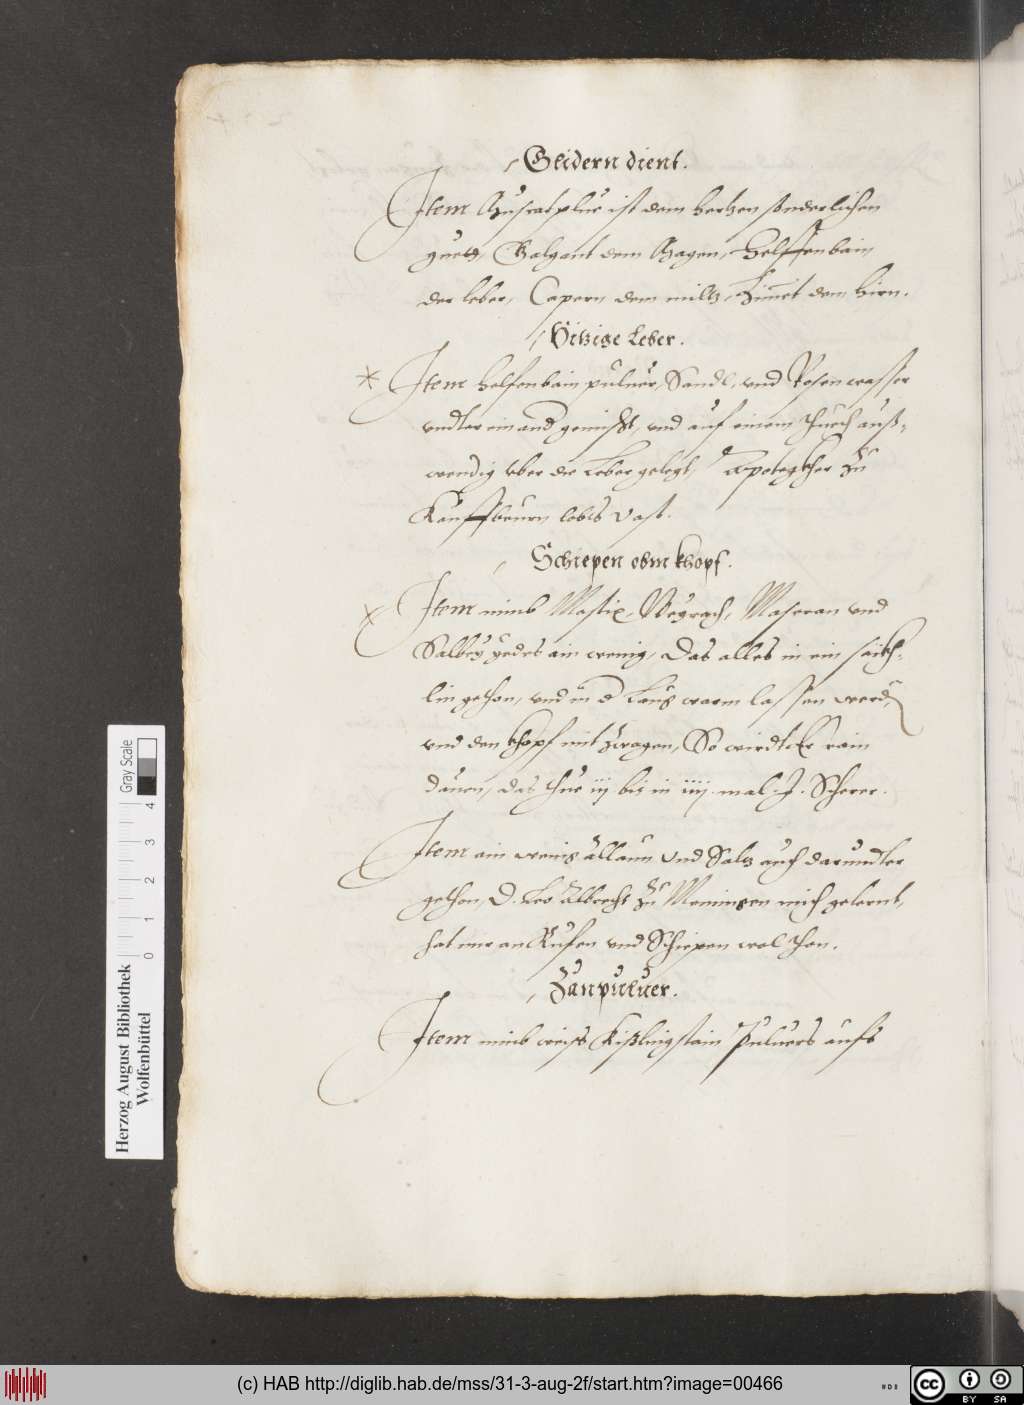 Glidern dient.
Item Muscatplüe ist dem hertzen sonderlichen
guett, Galgant dem Magen, Helffenbain
der leber, Capern dem miltz, Zimet dem hirn.
Hitzige Leber.
* Item helfenbain puluer, Sandl, vnd Rosenwasser
vndter einand gemischt, vnd auf einem Thuech auß-
wendig vber die Leber gelegt, Apotegkher zu
Kauffbeurn lobts vast.
Schiepen obm khopf.
x Item nimb Mastix, Weyrach, Maseran vnd
Salbey yedes ain wenig, Das alles in ein säckh-
lin gethon, vnd in d Laug warm lassen werd,
vnd den khopf mit zwagen, So wirdt er rain
dauon, das thue iij bis in iiij mal. J. Scherer.
Item ain wenig allaun vnd Saltz auch darundter
gethon, D. Leo Albrecht zu Memingen mich gelernt,
hat mir an Rufen vnd Schiepen wol thon.
Zanpuluer.
Item nimb weiss Kißlingstain Puluers aufs
Herzog August Bibliothek
Wolfenbüttel
0 1 2 3 4
Gray Scale
(c) HAB http://diglib.hab.de/mss/31-3-aug-2f/start.htm?image=00466
cc BY SA